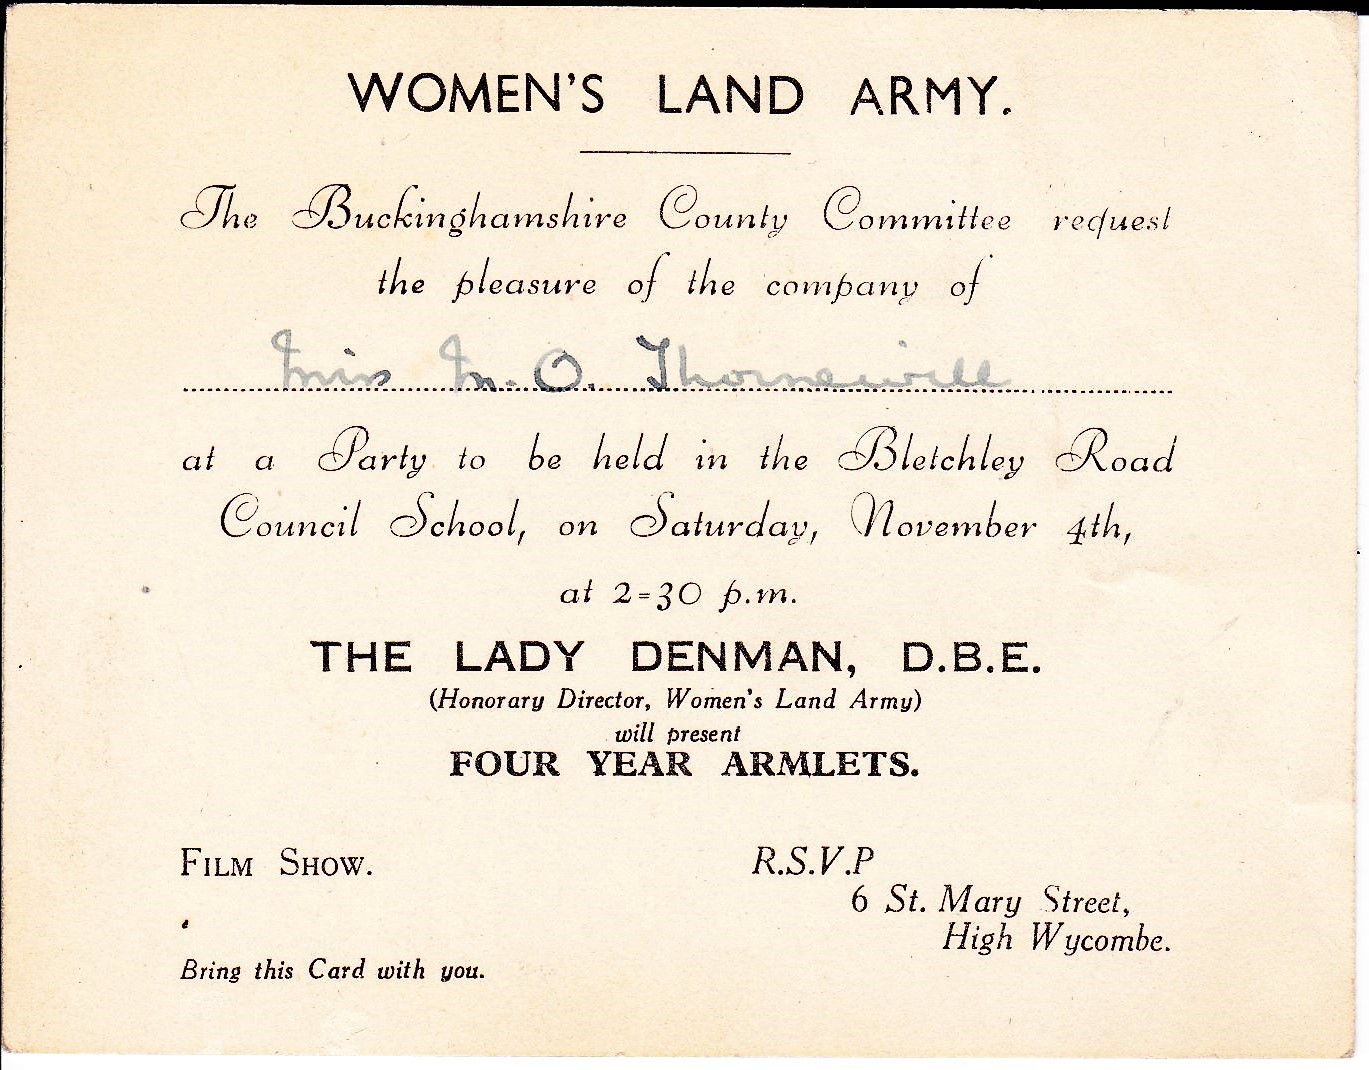 WOMEN'S LAND ARMY.
The Buckinghamshire County Committee request
the pleasure of the company of
Miss M. O. Thornewill
at a Party to be held in the Bletchley Road
Council School, on Saturday, November 4th,
at 2=30 p.m.
THE LADY DENMAN, D.B.E.
(Honorary Director, Women's Land Army)
will present
FOUR YEAR ARMLETS.
FILM SHOW.
R.S.V.P
6 St. Mary Street,
High Wycombe.
Bring this Card with you.